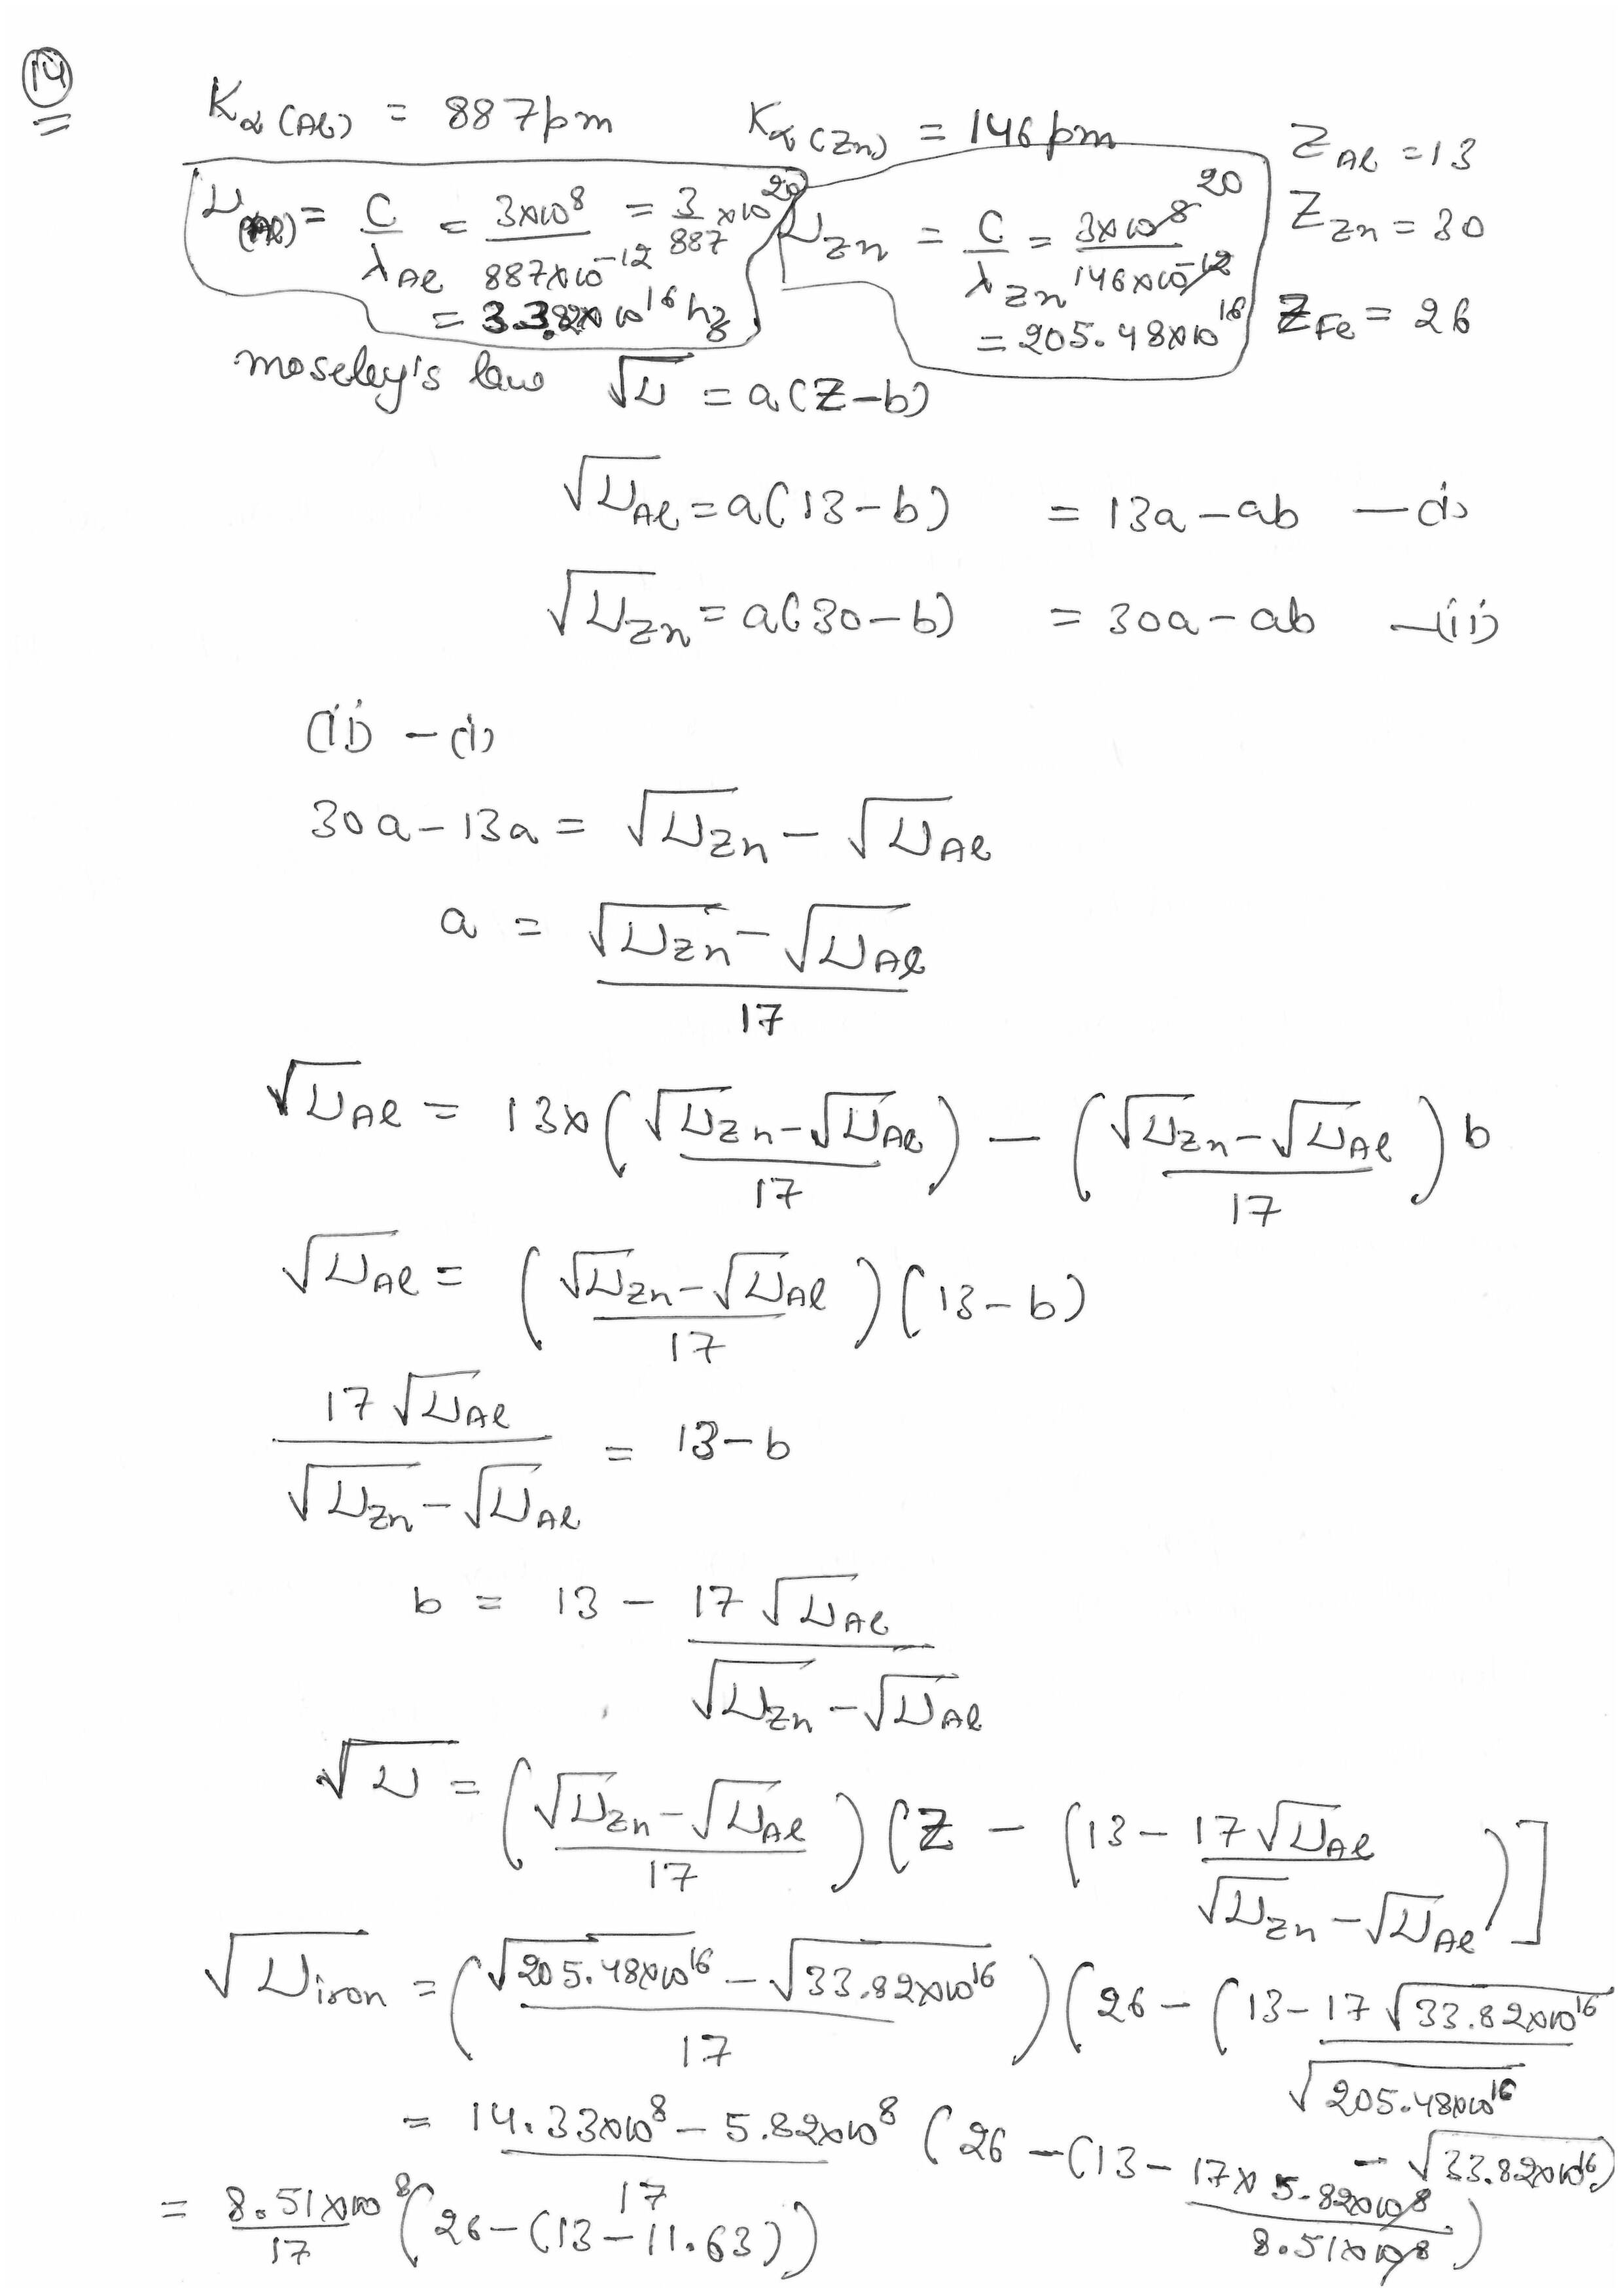 14
Kα(Al) = 887pm    Kα(Zn) = 146pm    Z Al = 13
ν(Al) = C/λAl = 3×10^8/887×10^-12 = 3/887 ×10^20    νZn = C/λZn = 3×10^8/146×10^-12 20    Z Zn = 30
= 33.82×10^16 hz    = 205.48×10^16    Z Fe = 26
moseley's law √ν = a(Z-b)
√νAl = a(13-b) = 13a-ab —(i)
√νZn = a(30-b) = 30a-ab —(ii)
(ii) - (i)
30a-13a = √νZn - √νAl
a = (√νZn - √νAl)/17
√νAl = 13×((√νZn-√νAl)/17) - ((√νZn-√νAl)/17)b
√νAl = ((√νZn-√νAl)/17)(13-b)
17√νAl/(√νZn-√νAl) = 13-b
b = 13 - 17√νAl/(√νZn-√νAl)
√ν = ((√νZn-√νAl)/17)(Z - (13-17√νAl/(√νZn-√νAl))]
√νiron = ((√205.48×10^16 - √33.82×10^16)/17)(26-(13-17√33.82×10^16/√205.48×10^16 - √33.82×10^16)
= (14.33×10^8 - 5.82×10^8)/17 (26-(13-17×5.82×10^8/8.51×10^8)
= 8.51×10^8/17 (26-(13-11.63))